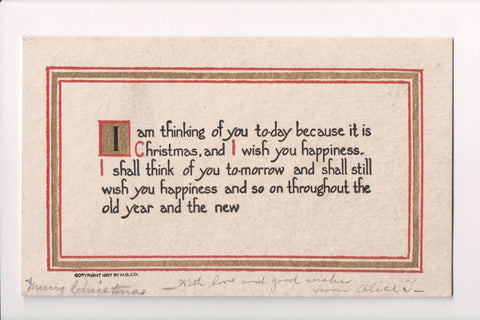 I am thinking of you to-day because it is
Christmas, and I wish you happiness.
I shall think of you to-morrow and shall still
wish you happiness and so on throughout the
old year and the new
COPYRIGHT 1907 BY H.B.CO.
Merry Christmas — With love and good wishes
from Alice T—